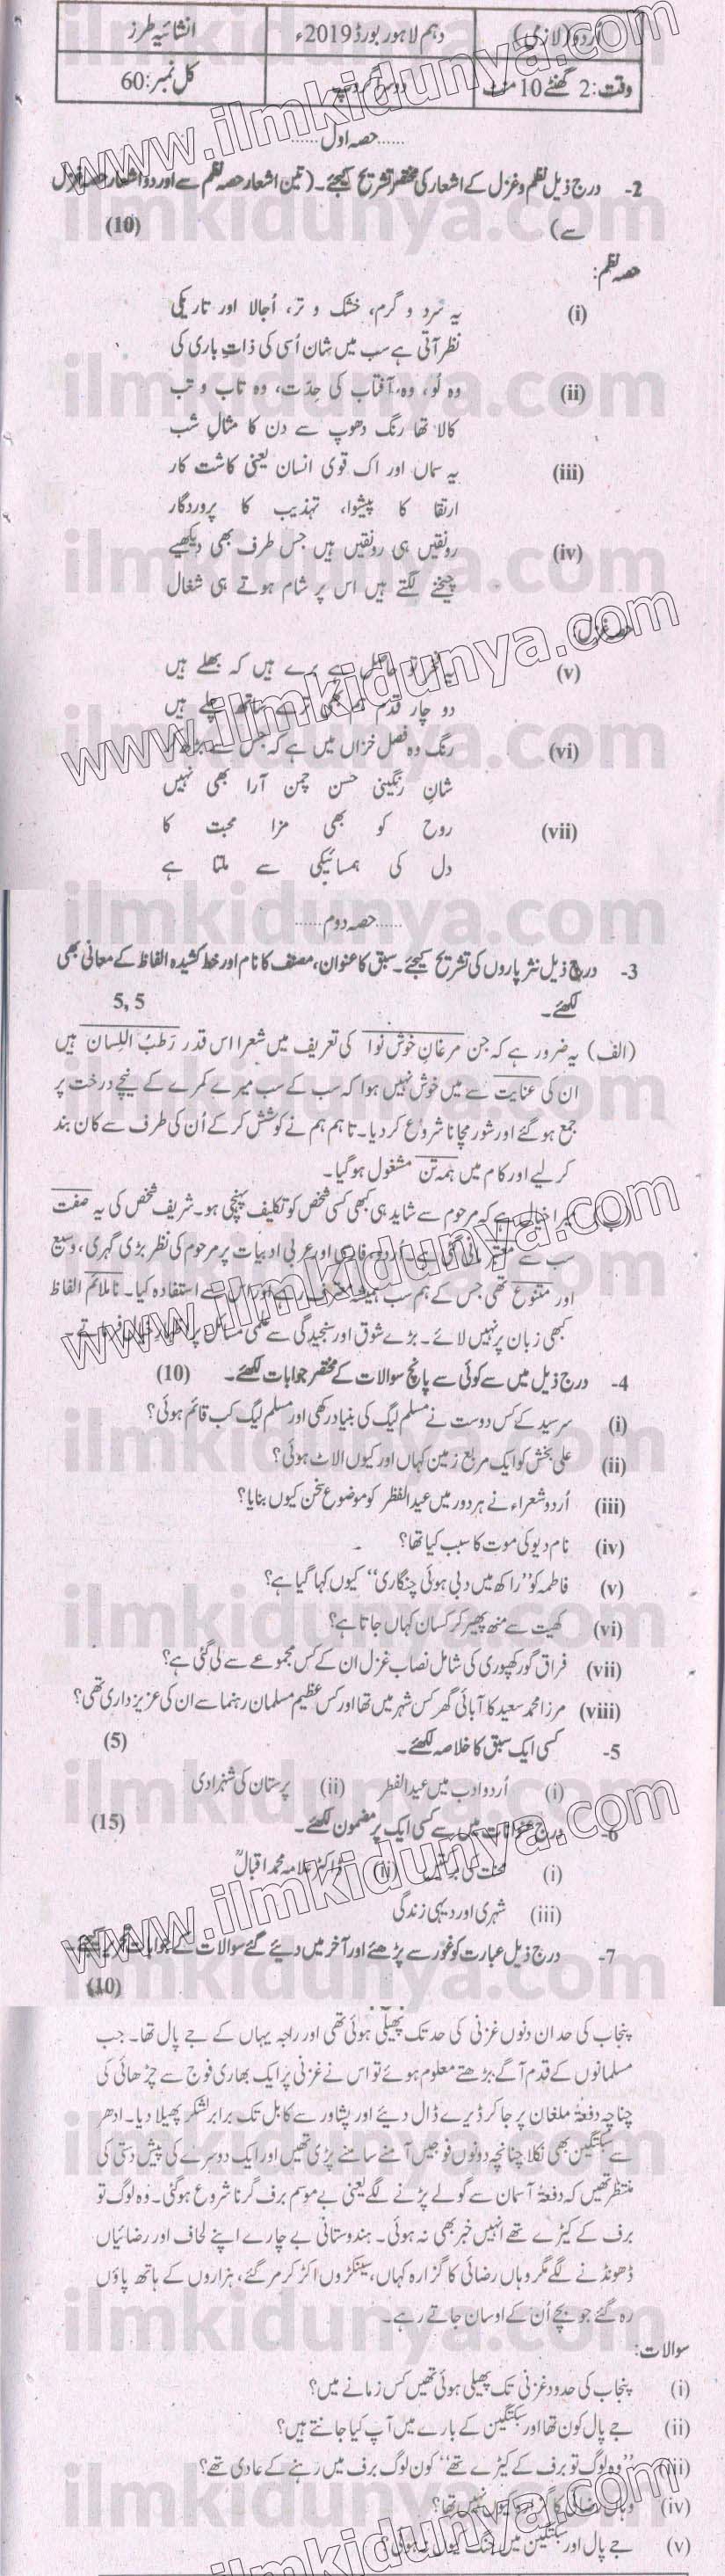 اردو (لازمی)
دہم لاہور بورڈ 2019ء
انشائیہ طرز
وقت: 2 گھنٹے 10 منٹ
دوسرا گروپ
کل نمبر: 60
......حصہ اول......
2- درج ذیل نظم و غزل کے اشعار کی مختصر تشریح کیجئے۔ (تین اشعار حصہ نظم سے اور دو اشعار حصہ غزل
سے) (10)
حصہ نظم:
(i) یہ سرد و گرم، خشک و تر، اُجالا اور تاریکی
نظر آتی ہے سب میں شان اُسی کی ذاتِ باری کی
(ii) وہ لُو، وہ آفتاب کی حِدّت، وہ تاب و تب
کالا تھا رنگ دھوپ سے دن کا مثالِ شب
(iii) یہ سماں اور اک قوی انسان یعنی کاشت کار
ارتقا کا پیشوا، تہذیب کا پروردگار
(iv) رونقیں ہی رونقیں ہیں جس طرف بھی دیکھیے
چیخنے لگتے ہیں اس پر شام ہوتے ہی شغال
حصہ غزل:
(v) یہ فخر تو حاصل ہے برے ہیں کہ بھلے ہیں
دو چار قدم ہم بھی ترے ساتھ چلے ہیں
(vi) رنگ وہ فصل خزاں میں ہے کہ جس سے بڑھ کر
شانِ رنگینی حسن چمن آرا بھی نہیں
(vii) روح کو بھی مزا محبت کا
دل کی ہمسائیگی سے ملتا ہے
......حصہ دوم......
3- درج ذیل نثر پاروں کی تشریح کیجئے۔ سبق کا عنوان، مصنف کا نام اور خط کشیدہ الفاظ کے معانی بھی
لکھئے۔ 5,5
(الف) یہ ضرور ہے کہ جن مرغانِ خوش نوا کی تعریف میں شعرا اس قدر رَطبُ اللِسان ہیں
ان کی عنایت سے میں خوش نہیں ہوا کہ سب کے سب میرے کمرے کے نیچے درخت پر
جمع ہو گئے اور شور مچانا شروع کر دیا۔ تاہم ہم نے کوشش کر کے اُن کی طرف سے کان بند
کر لیے اور کام میں ہَمہ تَن مشغول ہو گیا۔
(ب) میرا خیال ہے کہ مرحوم سے شاید ہی کبھی کسی شخص کو تکلیف پہنچی ہو۔ شریف شخص کی یہ صفت
سب سے معتبر مانی گئی ہے۔ اُردو، فارسی اور عربی ادبیات پر مرحوم کی نظر بڑی گہری، وسیع
اور متنوع تھی جس کے ہم سب ہمیشہ معترف رہے اور اس سے استفادہ کیا۔ ناملائم الفاظ
کبھی زبان پر نہیں لائے۔ بڑے شوق اور سنجیدگی سے علمی مسائل پر اظہار خیال فرماتے۔
4- درج ذیل میں سے کوئی سے پانچ سوالات کے مختصر جوابات لکھئے۔ (10)
(i) سرسید کے کس دوست نے مسلم لیگ کی بنیاد رکھی اور مسلم لیگ کب قائم ہوئی؟
(ii) علی بخش کو ایک مربع زمین کہاں اور کیوں الاٹ ہوئی؟
(iii) اُردو شعراء نے ہر دور میں عید الفطر کو موضوع سخن کیوں بنایا؟
(iv) نام دیو کی موت کا سبب کیا تھا؟
(v) فاطمہ کو "راکھ میں دبی ہوئی چنگاری" کیوں کہا گیا ہے؟
(vi) کھیت سے منھ پھیر کر کسان کہاں جاتا ہے؟
(vii) فراق گورکھپوری کی شامل نصاب غزل ان کے کس مجموعے سے لی گئی ہے؟
(viii) مرزا محمد سعید کا آبائی گھر کس شہر میں تھا اور کس عظیم مسلمان رہنما سے ان کی عزیز داری تھی؟
5- کسی ایک سبق کا خلاصہ لکھئے۔ (5)
(i) اُردو ادب میں عید الفطر (ii) پرستان کی شہزادی
6- درج عنوانات میں سے کسی ایک پر مضمون لکھئے۔ (15)
(i) محنت کی برکتیں (ii) ڈاکٹر علامہ محمد اقبالؒ
(iii) شہری اور دیہی زندگی
7- درج ذیل عبارت کو غور سے پڑھئے اور آخر میں دیئے گئے سوالات کے جوابات تحریر کیجئے۔
(10)
پنجاب کی حد ان دنوں غزنی کی حد تک پھیلی ہوئی تھی اور راجہ یہاں کے جے پال تھا۔ جب
مسلمانوں کے قدم آگے بڑھتے معلوم ہوئے تو اس نے غزنی پر ایک بھاری فوج سے چڑھائی کی
چناچہ دفعۃً ملغان پر جا کر ڈیرے ڈال دیئے اور پشاور سے کابل تک برابر لشکر پھیلا دیا۔ ادھر
سے سبکتگین بھی نکلا چنانچہ دونوں فوجیں آمنے سامنے پڑی تھیں اور ایک دوسرے کی پیش دستی کی
منتظر تھیں کہ دفعۃً آسمان سے گولے پڑنے لگے یعنی بے موسم برف گرنا شروع ہو گئی۔ وہ لوگ تو
برف کے کیڑے تھے انہیں خبر بھی نہ ہوئی۔ ہندوستانی بے چارے اپنے لحاف اور رضائیاں
ڈھونڈنے لگے مگر وہاں رضائی کا گزارہ کہاں، سینکڑوں اکڑ کر مر گئے، ہزاروں کے ہاتھ پاؤں
رہ گئے جو بچے اُن کے اوسان جاتے رہے۔
سوالات:
(i) پنجاب کی حدود غزنی تک پھیلی ہوئی تھیں کس زمانے میں؟
(ii) جے پال کون تھا اور سبکتگین کے بارے میں آپ کیا جانتے ہیں؟
(iii) "وہ لوگ تو برف کے کیڑے تھے" کون لوگ برف میں رہنے کے عادی تھے؟
(iv) وہاں رضائی کا گزارہ کیوں نہیں تھا؟
(v) جے پال اور سبکتگین میں جنگ کیوں نہ ہوئی؟
www.ilmkidunya.com